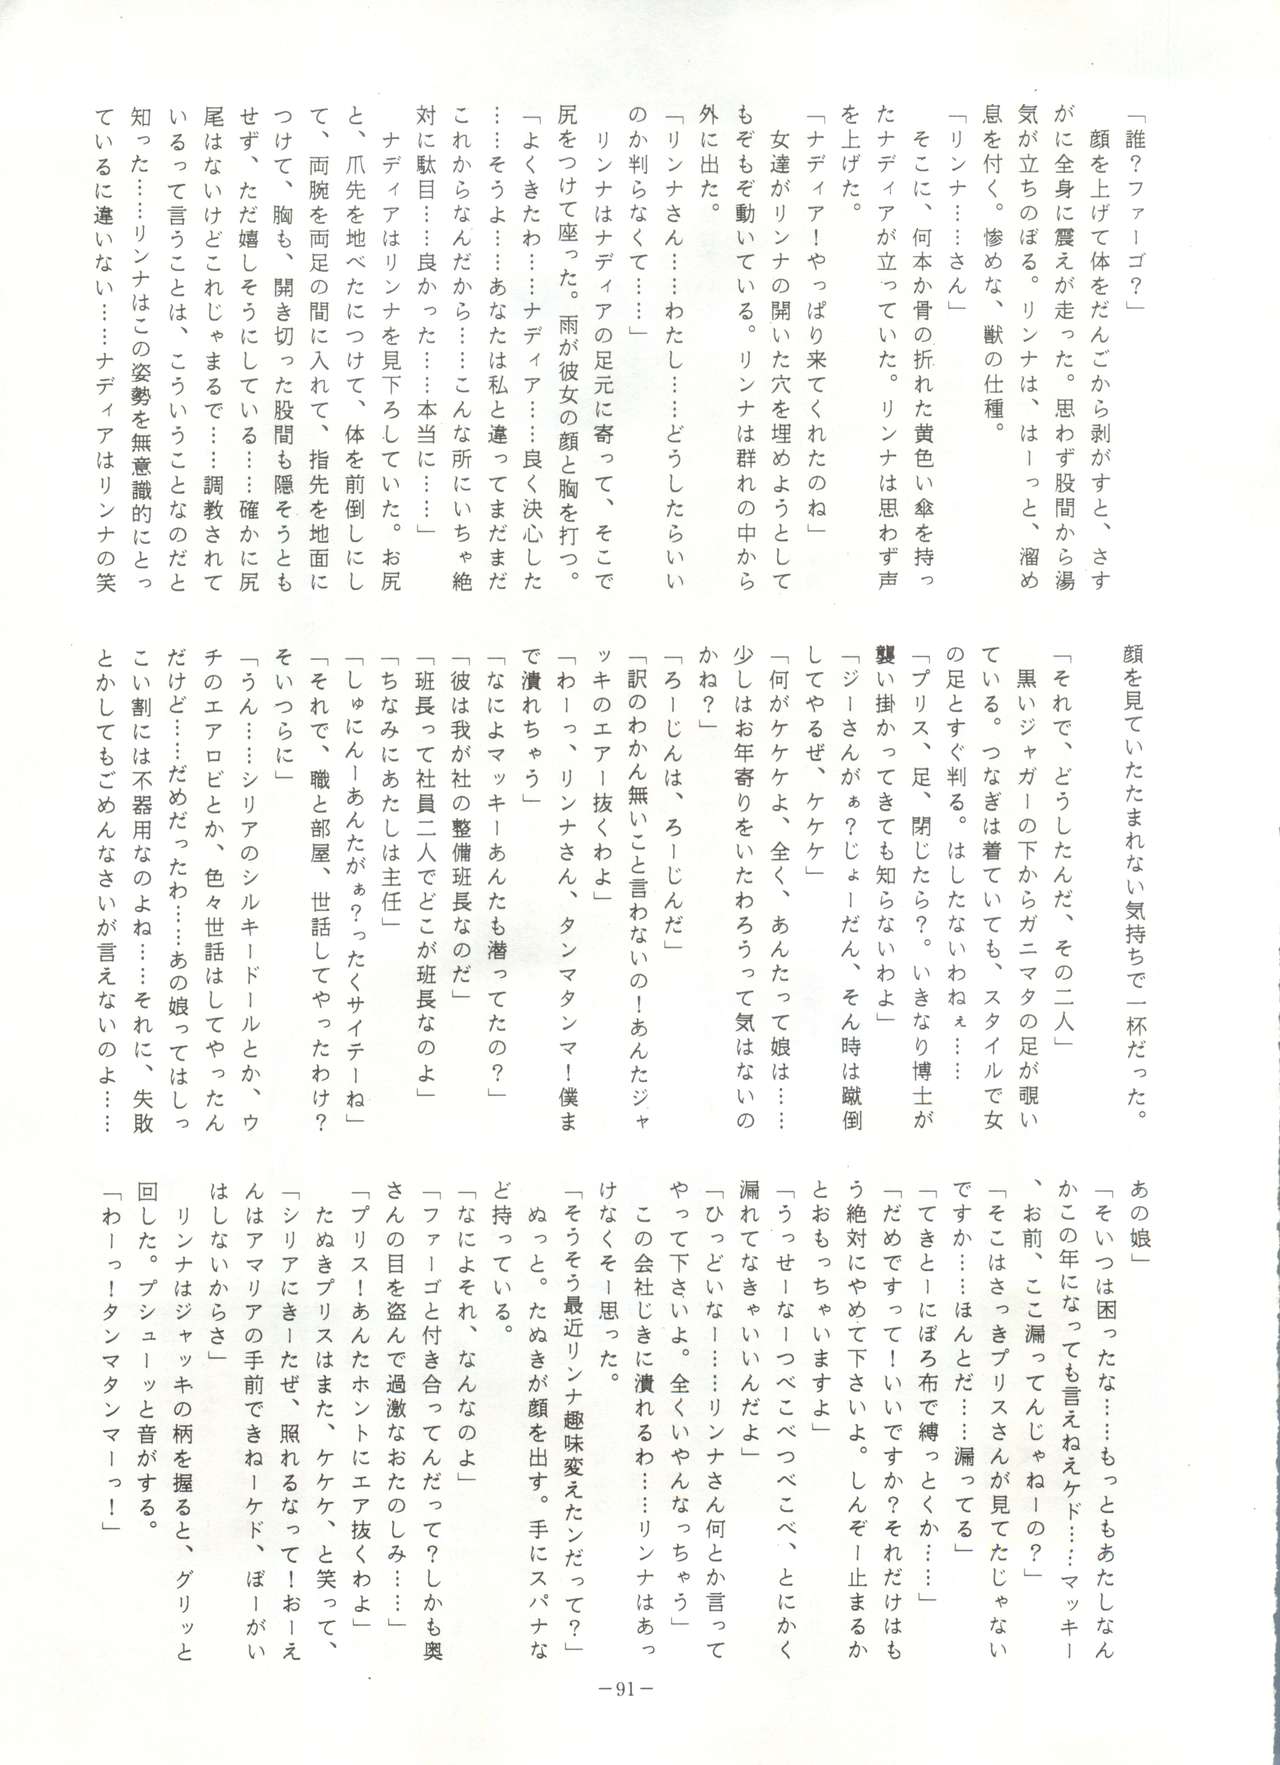 「誰？ファーゴ？」
　顔を上げて体をだんごから剥がすと、さす
がに全身に震えが走った。思わず股間から湯
気が立ちのぼる。リンナは、はーっと、溜め
息を付く。惨めな、獣の仕種。
「リンナ……さん」
　そこに、何本か骨の折れた黄色い傘を持っ
たナディアが立っていた。リンナは思わず声
を上げた。
「ナディア！やっぱり来てくれたのね」
　女達がリンナの開いた穴を埋めようとして
もぞもぞ動いている。リンナは群れの中から
外に出た。
「リンナさん……わたし……どうしたらいい
のか判らなくて……」
　リンナはナディアの足元に寄って、そこで
尻をつけて座った。雨が彼女の顔と胸を打つ。
「よくきたわ……ナディア……良く決心した
……そうよ……あなたは私と違ってまだまだ
これからなんだから……こんな所にいちゃ絶
対に駄目……良かった……本当に……」
　ナディアはリンナを見下ろしていた。お尻
と、爪先を地べたにつけて、体を前倒しにし
て、両腕を両足の間に入れて、指先を地面に
つけて、胸も、開き切った股間も隠そうとも
せず、ただ嬉しそうにしている……確かに尻
尾はないけどこれじゃまるで……調教されて
いるって言うことは、こういうことなのだと
知った……リンナはこの姿勢を無意識的にとっ
ているに違いない……ナディアはリンナの笑
顔を見ていたたまれない気持ちで一杯だった。
「それで、どうしたんだ、その二人」
　黒いジャガーの下からガニマタの足が覗い
ている。つなぎは着ていても、スタイルで女
の足とすぐ判る。はしたないわねぇ……
「プリス、足、閉じたら？。いきなり博士が
襲い掛かってきても知らないわよ」
「ジーさんがぁ？じょーだん、そん時は蹴倒
してやるぜ、ケケケ」
「何がケケケよ、全く、あんたって娘は……
少しはお年寄りをいたわろうって気はないの
かね？」
「ろーじんは、ろーじんだ」
「訳のわかん無いこと言わないの！あんたジャ
ッキのエアー抜くわよ」
「わーっ、リンナさん、タンマタンマ！僕ま
で潰れちゃう」
「なによマッキーあんたも潜ってたの？」
「彼は我が社の整備班長なのだ」
「班長って社員二人でどこが班長なのよ」
「ちなみにあたしは主任」
「しゅにんーあんたがぁ？ったくサイテーね」
「それで、職と部屋、世話してやったわけ？
そいつらに」
「うん……シリアのシルキードールとか、ウ
チのエアロビとか、色々世話はしてやったん
だけど……だめだったわ……あの娘ってはしっ
こい割には不器用なのよね……それに、失敗
とかしてもごめんなさいが言えないのよ……
あの娘」
「そいつは困ったな……もっともあたしなん
かこの年になっても言えねえケド……マッキー
、お前、ここ漏ってんじゃねーの？」
「そこはさっきプリスさんが見てたじゃない
ですか……ほんとだ……漏ってる」
「てきとーにぼろ布で縛っとくか……」
「だめですって！いいですか？それだけはも
う絶対にやめて下さいよ。しんぞー止まるか
とおもっちゃいますよ」
「うっせーなーつべこべつべこべ、とにかく
漏れてなきゃいいんだよ」
「ひっどいなー……リンナさん何とか言って
やって下さいよ。全くいやんなっちゃう」
　この会社じきに潰れるわ……リンナはあっ
けなくそー思った。
「そうそう最近リンナ趣味変えたンだって？」
　ぬっと。たぬきが顔を出す。手にスパナな
ど持っている。
「なによそれ、なんなのよ」
「ファーゴと付き合ってんだって？しかも奥
さんの目を盗んで過激なおたのしみ……」
「プリス！あんたホントにエア抜くわよ」
　たぬきプリスはまた、ケケケ、と笑って、
「シリアにきーたぜ、照れるなって！おーえ
んはアマリアの手前できねーケド、ぼーがい
はしないからさ」
　リンナはジャッキの柄を握ると、グリッと
回した。プシューッと音がする。
「わーっ！タンマタンマーっ！」
－91－